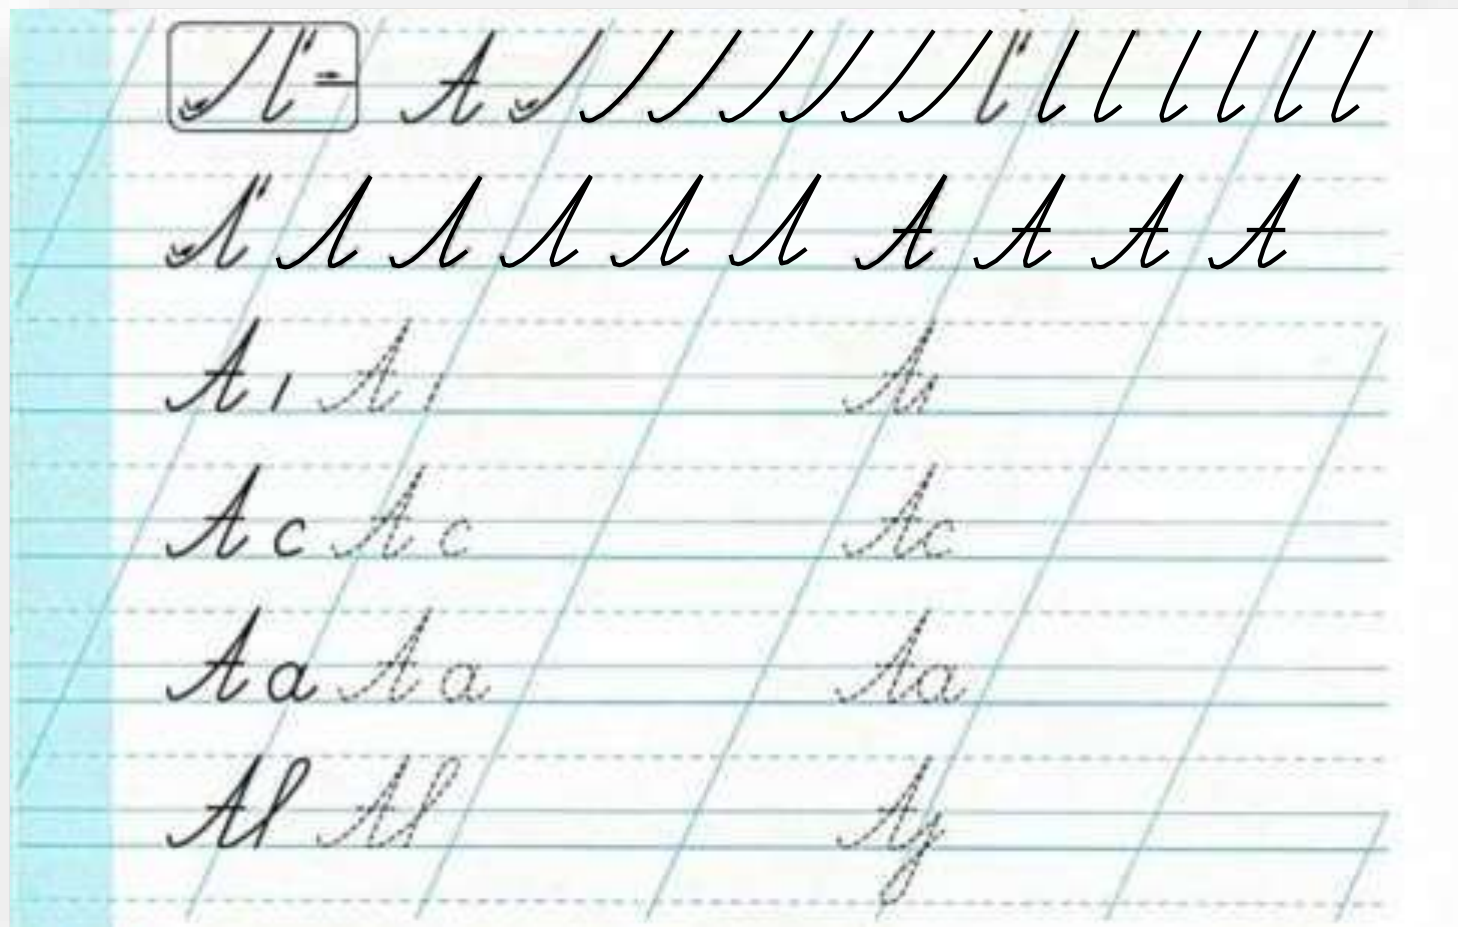 А
Л Л Л Л Л Л А А А А
А ı А ı Аı
А с А с Ас
А а А а Аа
Аl Аl Ау